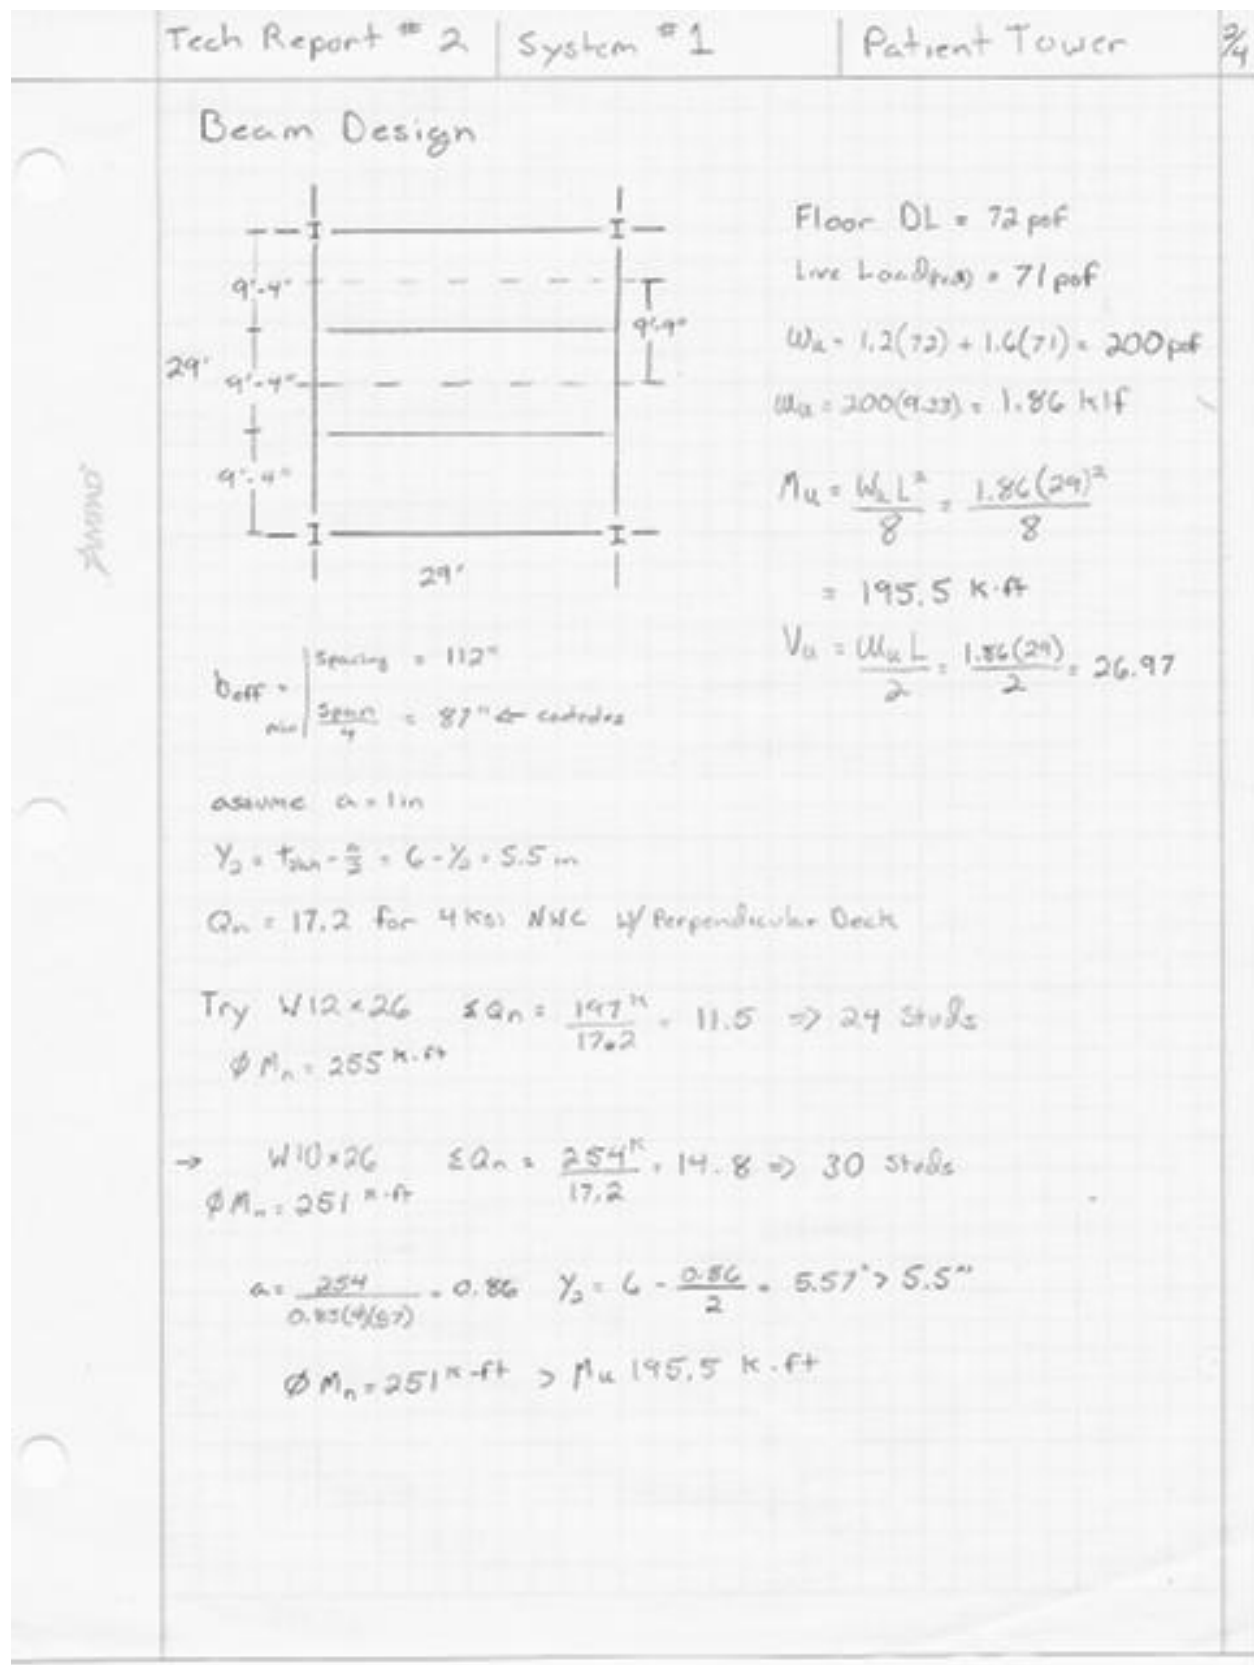 Tech Report # 2 | System #1 | Patient Tower 2/4
Beam Design
Floor DL = 72 psf
Live Load(red) = 71 psf
Wu = 1.2(72) + 1.6(71) = 200 psf
Wu = 200(9.33) = 1.86 klf
Mu = WuL²/8 = 1.86(29)²/8
= 195.5 k·ft
Vu = WuL/2 = 1.86(29)/2 = 26.97
9'-4"
9'-4"
9'-4"
29'
9'-9"
29'
AMPAD
beff = min | spacing = 112"
span/4 = 87" ← controls
assume a = 1 in
Y2 = tslab - a/2 = 6 - 1/2 = 5.5 in
Qn = 17.2 for 4 ksi NWC w/ Perpendicular Deck
Try W12×26 ΣQn = 197ᴷ/17.2 = 11.5 ⇒ 24 Studs
ØMn = 255 k·ft
→ W10×26 ΣQn = 254ᴷ/17.2 = 14.8 ⇒ 30 Studs
ØMn = 251 k·ft
a = 254/0.85(4)(87) = 0.86 Y2 = 6 - 0.86/2 = 5.57" > 5.5"
ØMn = 251 k-ft > Mu 195.5 k·ft